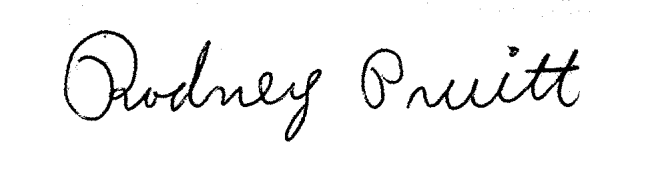 Rodney Pruitt